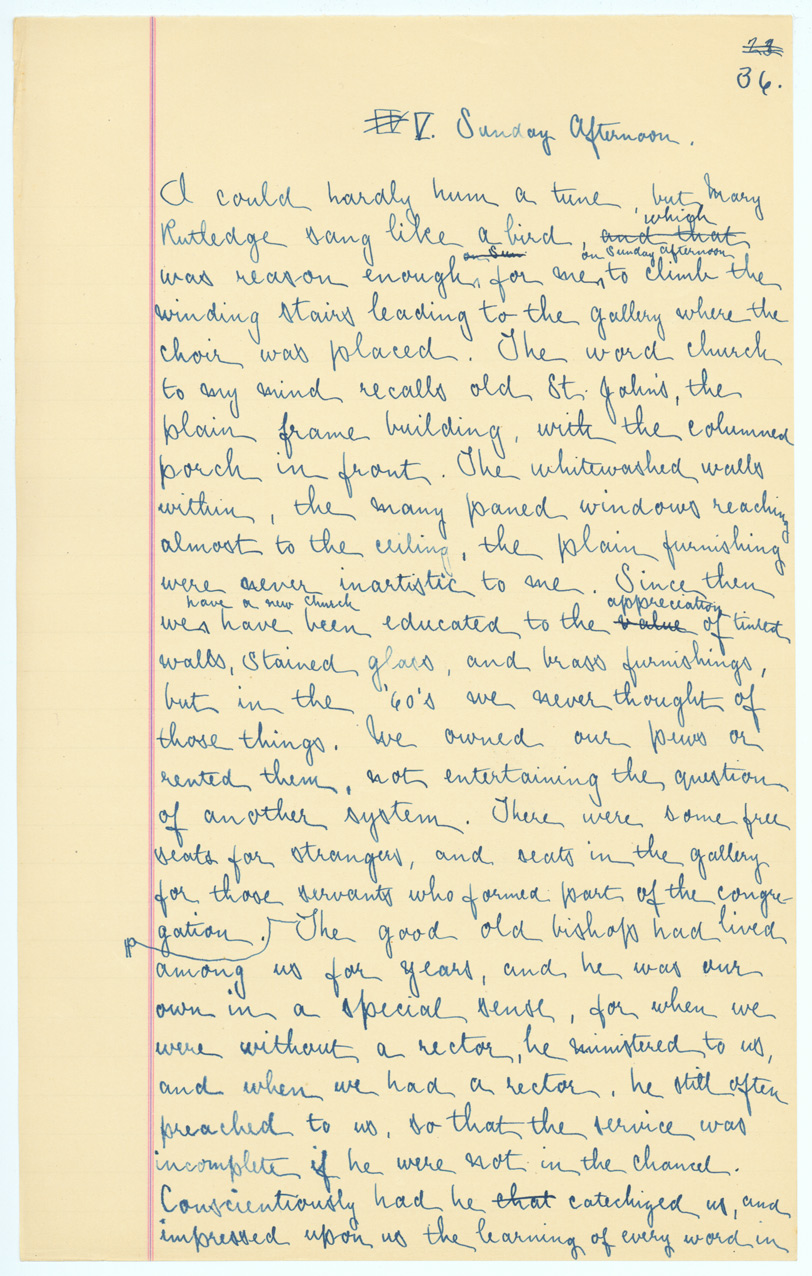 23
36.
IV V. Sunday Afternoon.
I could hardly hum a tune, but Mary
which
Rutledge sang like a bird, and that
on Sun on Sunday afternoon
was reason enough, for me, to climb the
winding stairs leading to the gallery where the
choir was placed. The word church
to my mind recalls old St. John's, the
plain frame building, with the columned
porch in front. The whitewashed walls
within, the many paned windows reaching
almost to the ceiling, the plain furnishing
were never inartistic to me. Since then
have a new church appreciation
we have been educated to the value of tinted
walls, stained glass, and brass furnishings,
but in the '60's we never thought of
those things. We owned our pews or
rented them, not entertaining the question
of another system. There were some free
seats for strangers, and seats in the gallery
for those servants who formed part of the congre-
gation. The good old bishop had lived
among us for years, and he was our
own in a special sense, for when we
were without a rector, he ministered to us,
and when we had a rector, he still often
preached to us, so that the service was
incomplete if he were not in the chancel.
Conscientiously had he that catechized us, and
impressed upon us the learning of every word in